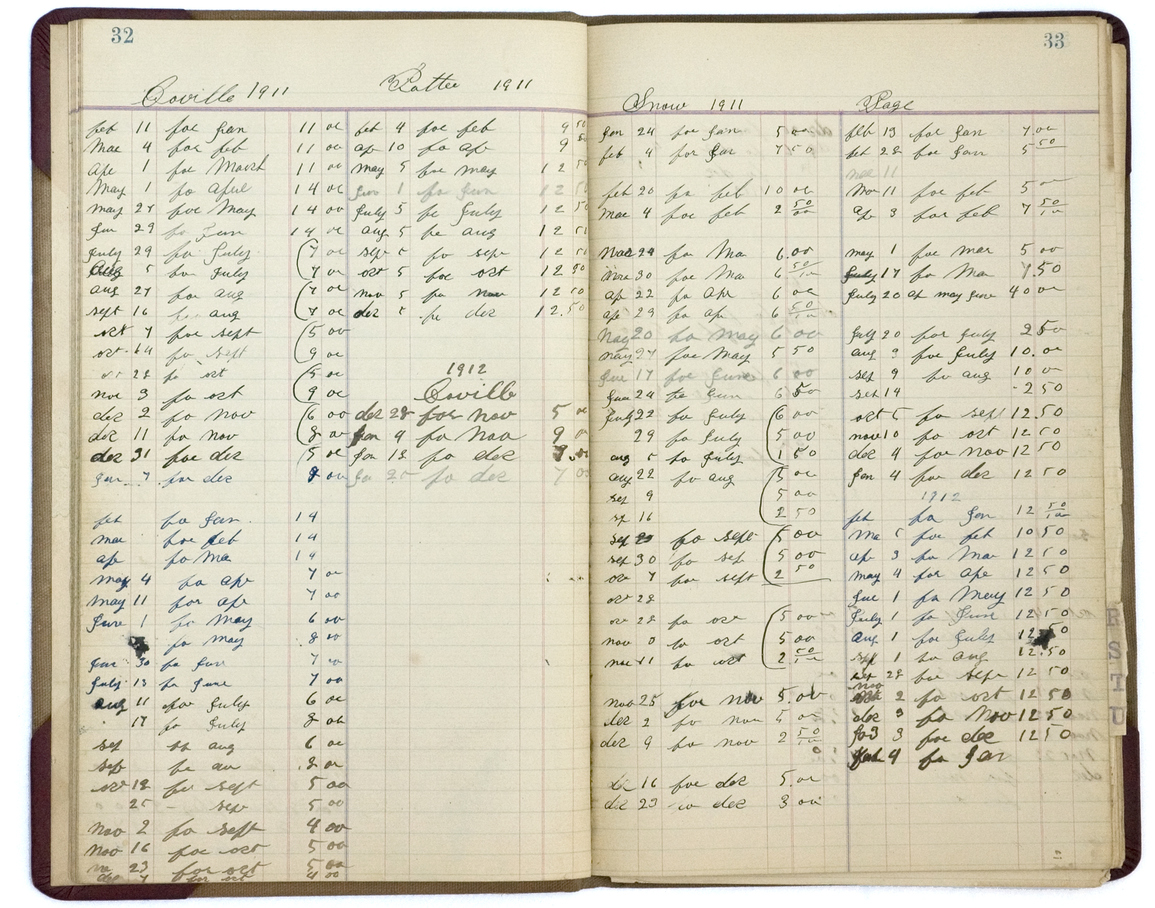 32
Coville 1911
feb 11 for Jan 11 00
Mar 4 for feb 11 00
Apr 1 for March 11 00
May 1 fo April 14 00
may 27 for May 14 00
Jun 29 fo Jun 14 00
July 29 fo July 7 00
Aug 5 fo July 7 00
aug 27 fo aug 7 00
sept 16 aug 7 00
oct 7 for sept 5 00
oct fo sept 9 00
28 fo oct 5 00
nov 3 fo oct 9 00
dec 2 fo nov 6 00
dec 11 fo nov 8 00
dec 31 for dec 5 00
Jan 7 for dec 8 00
feb fo Jan 14
mar for feb 14
ap fo Ma 14
may 4 fo apr 7 00
may 11 for apr 7 00
June 1 fo May 6 00
fo may 8 00
Jun 30 fo Jun 7 00
July 13 fo June 7 00
aug 11 for July 6 00
17 fo July 8 00
sep aug 6 00
sep 8 00
oct 12 for sept 5 00
" 25 - sep 5 00
nov 2 fo sept 4 00
nov 16 for oct 5 00
23 for oct 5 00
4 00
Potter 1911
feb 4 for feb 9 50
ap 10 fo ap 9
may 5 for may 12 50
1 fo Jun 12 50
July 5 fo July 12 50
aug 5 fo aug 12 50
sept 5 fo sep 12 50
oct 5 for oct 12 50
nov 5 fo nov 12 50
dec 5 fo dec 12.50
1912
Coville
dec 28 for nov 5 00
Jan 9 fo Nov 9 00
Jan 12 fo dec
Ja 25 fo dec 7 00
33
Snow 1911
Jan 24 for Jan 5 00
feb 4 for Jan 7 50
feb 20 fo feb 10 00
Mar 4 for feb 2 50/100
Mar 24 fo Ma 6.00
30 for Ma 6 50/100
ap 22 fo Apr 6 00
ap 29 fo ap 6 50/100
May 20 fo may 6 00
may 27 for May 5 50
Jun 17 for June 6 00
June 24 fo Jun 6 50
July 22 fo July 6 00
29 fo July 5 00
aug 5 fo July 1 50
aug 22 fo aug 5 00
sep 9 5 00
sp 16 2 50
sep fo sept 5 00
sep 30 fo sep 5 00
oct 7 fo sept 2 50
oct 28
oct 28 fo oct 5 00
nov fo oct 5 00
nov 11 fo oct 2 50/100
nov 25 for nov 5.00
dec 2 fo nov 5 00
dec 9 fo nov 2 50/100
dec 16 for dec 5.00
dec 23 dec 3 00
Page
feb 13 for Jan 7 00
feb 28 for Jan 5 50
mar 11
Mar 11 for feb 5 00
ap 3 for feb 7 50/100
may 1 for mar 5 00
July 17 fo Mar 7.50
July 20 ap may June 40 00
July 20 for July 2 50
aug 9 for July 10.00
sep 9 fo aug 10 00
sep 14 - 2 50
oct 5 fo sep 12.50
nov 10 fo oct 12 50
dec 4 for nov 12 50
Jan 4 for dec 12 50
1912
feb fo Jan 12 50/100
Ma 5 for feb 10 50
apr 3 fo Mar 12 50
may 4 for Apr 12 50
Jun 1 fo May 12 50
July 1 fo June 12 50
Aug 1 fo July 12.50
sep 1 fo aug 12.50
sep 28 for sept 12 50
nov 2 fo oct 12 50
dec 3 fo Nov 12 50
Ja 3 for dec 12 50
4 fo Jan
R
S
T
U